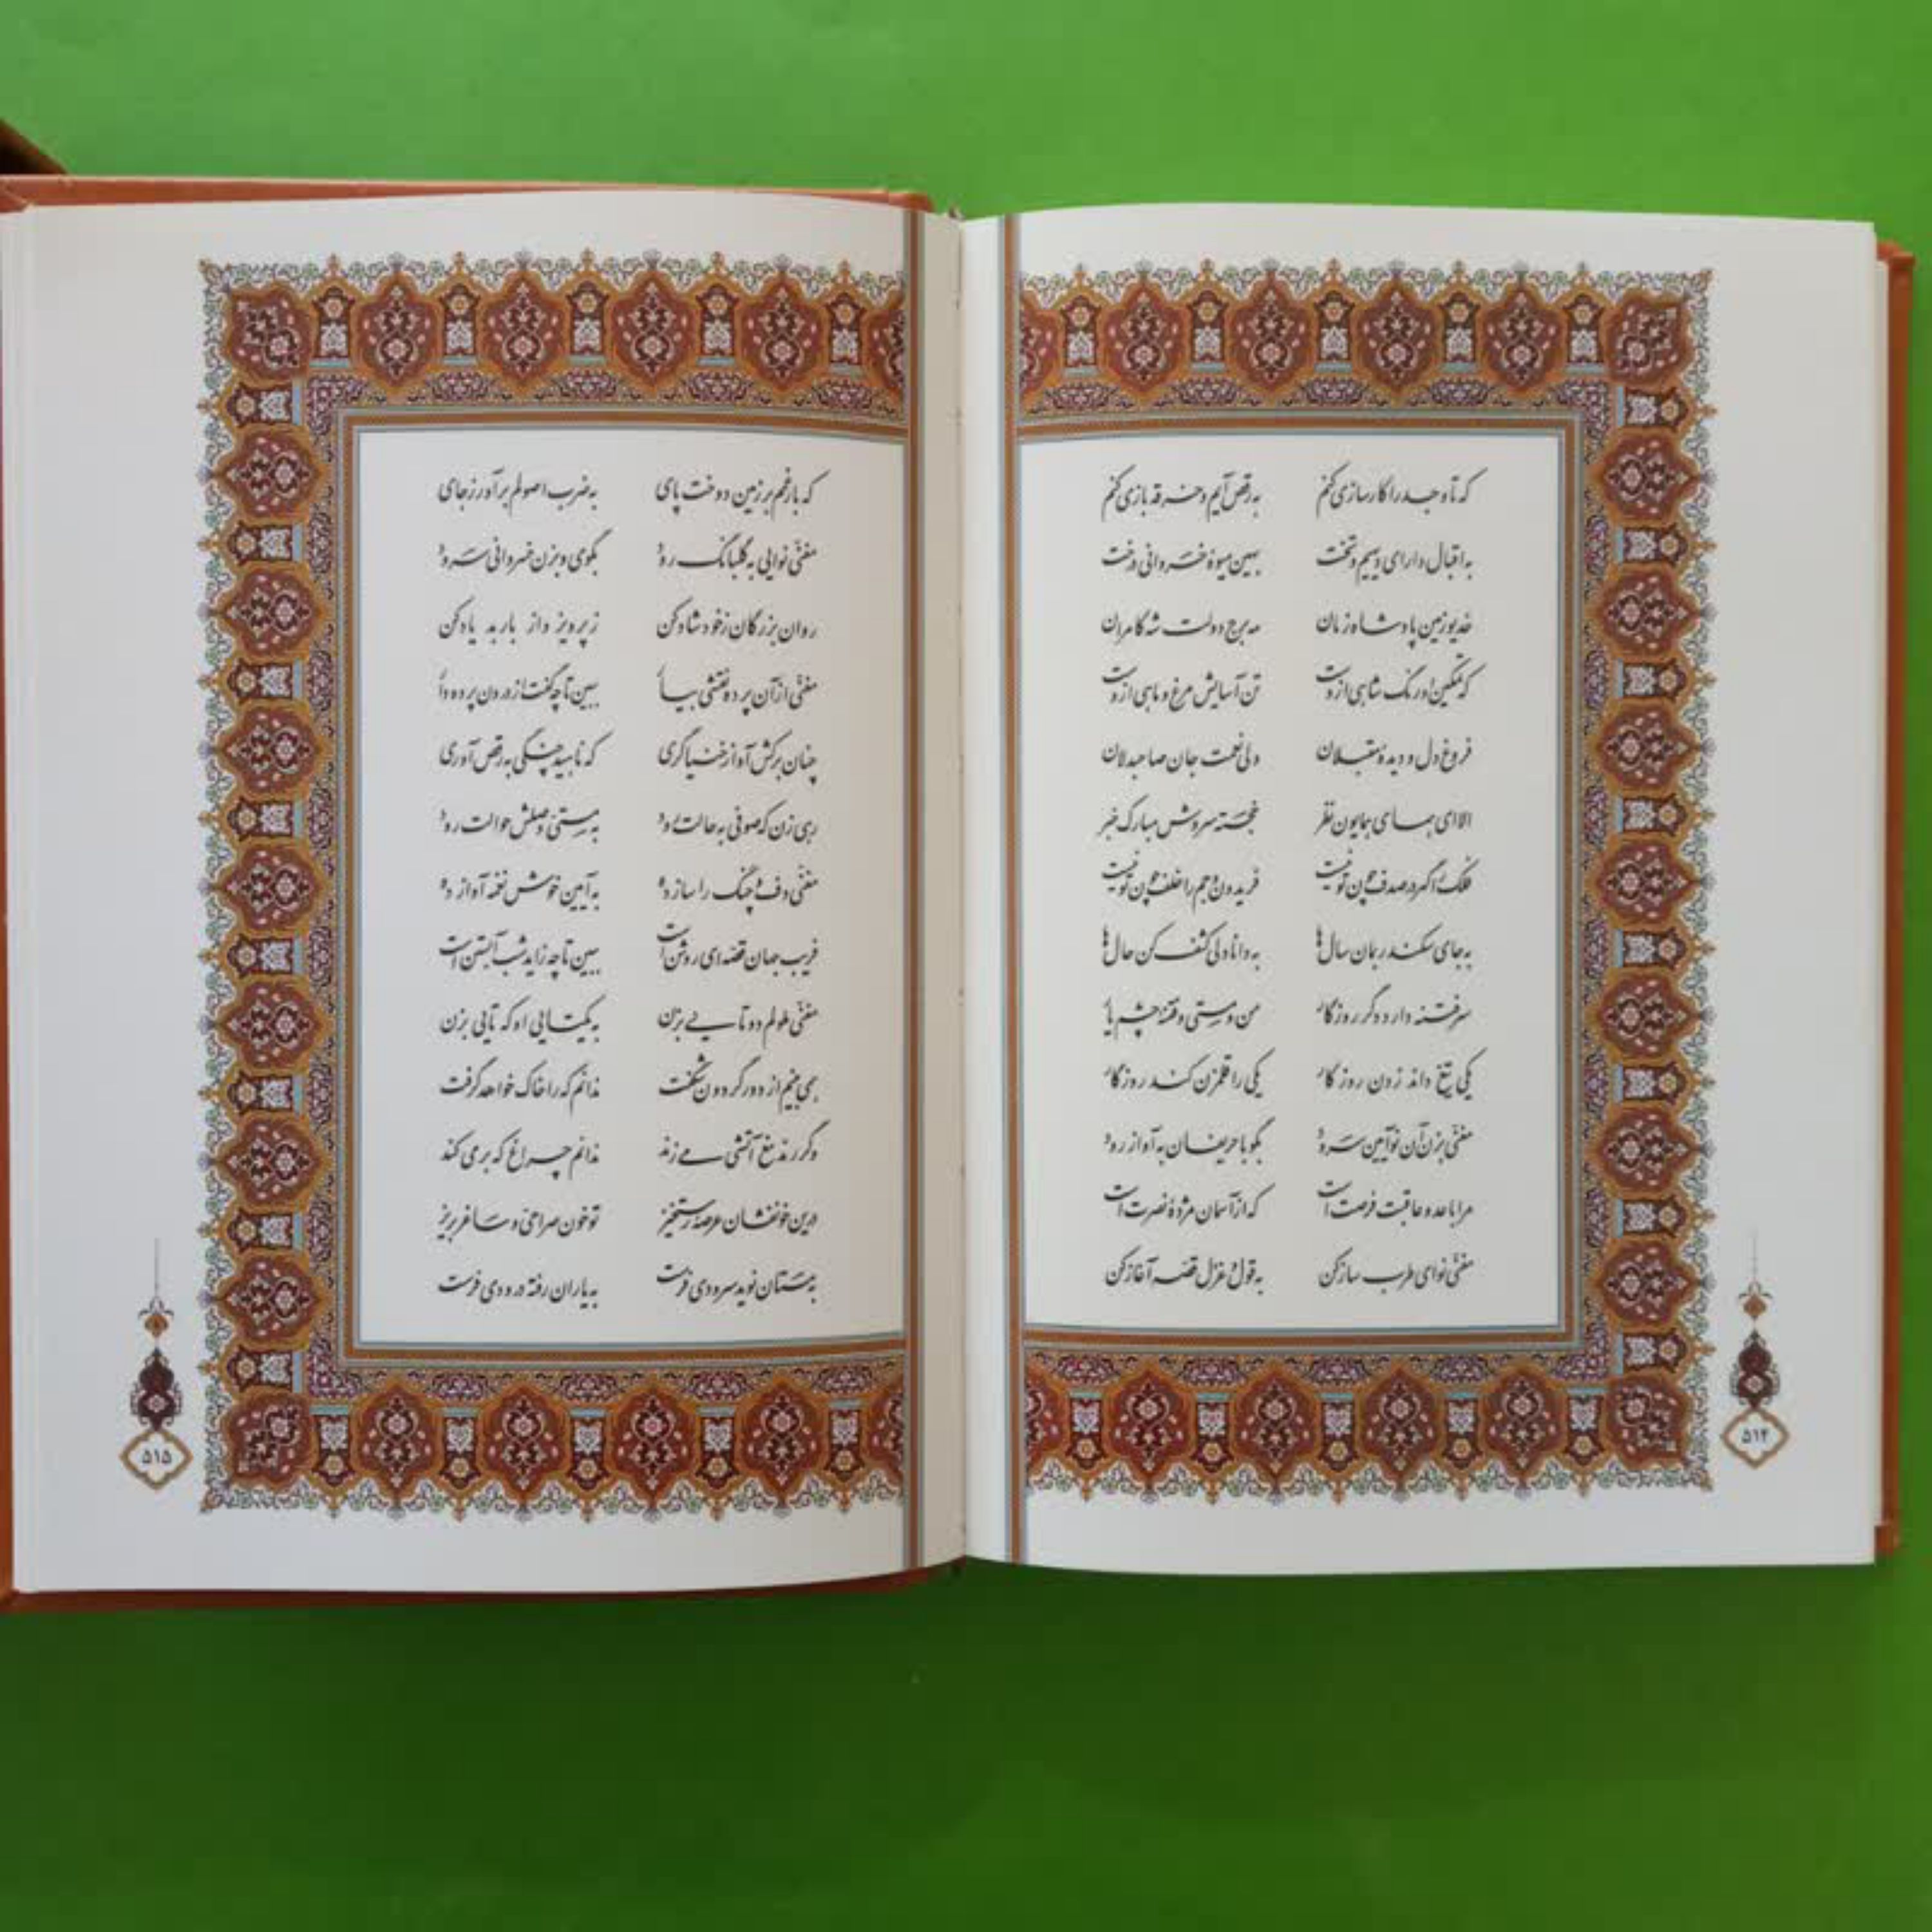 که تا وجد را کارسازی کنم به رقص آیم و خرقه بازی کنم
به اقبال دارای دیهیم و تخت بهین میوهٔ خسروانی درخت
خدیو زمین پادشاه زمان مه برج دولت شه کامران
که تمکین اورنگ شاهی ازوست تن آسایش مرغ و ماهی ازوست
فروغ دل و دیدهٔ مقبلان ولی نعمت جان صاحبدلان
الا ای همای همایون نظر خجسته سروش مبارک خبر
فلک را گهر در صدف چون تو نیست فریدون و جم را خلف چون تو نیست
به جای سکندر بمان سال‌ها به دانا دلی کشف کن حال‌ها
سر فتنه دارد دگر روزگار من و مستی و فتنهٔ چشم یار
یکی تیغ داند زدن روز کار یکی را قلمزن کند روزگار
مغنّی بزن آن نوآیین سرود بگو با حریفان به آواز رود
مرا با عدو عاقبت فرصت است که از آسمان مژدهٔ نصرت است
مغنّی نوای طرب ساز کن به قول و غزل قصّه آغاز کن
۵۱۴
که بار غمم بر زمین دوخت پای به ضرب اصولم برآور ز جای
مغنّی نوایی به گلبانگ رود بگوی و بزن خسروانی سرود
روان بزرگان ز خود شاد کن ز پرویز و از باربد یاد کن
مغنّی از آن پرده نقشی بیار ببین تا چه گفت از درون پرده‌دار
چنان برکش آواز خنیاگری که ناهید چنگی به رقص آوری
رهی زن که صوفی به حالت رود به مستی وصلش حوالت رود
مغنّی دف و چنگ را ساز ده به آیین خوش نغمه آواز ده
فریب جهان قصّه‌ای روشن است ببین تا چه زاید شب آبستن است
مغنّی ملولم دو تایی بزن به یکتایی او که تایی بزن
همی بینم از دور گردون شگفت ندانم که را خاک خواهد گرفت
دگر رند مغ آتشی می زند ندانم چراغ که بر می کند
درین خونفشان عرصهٔ رستخیز تو خون صراحی و ساغر بریز
به مستان نوید سرودی فرست به یاران رفته درودی فرست
۵۱۵